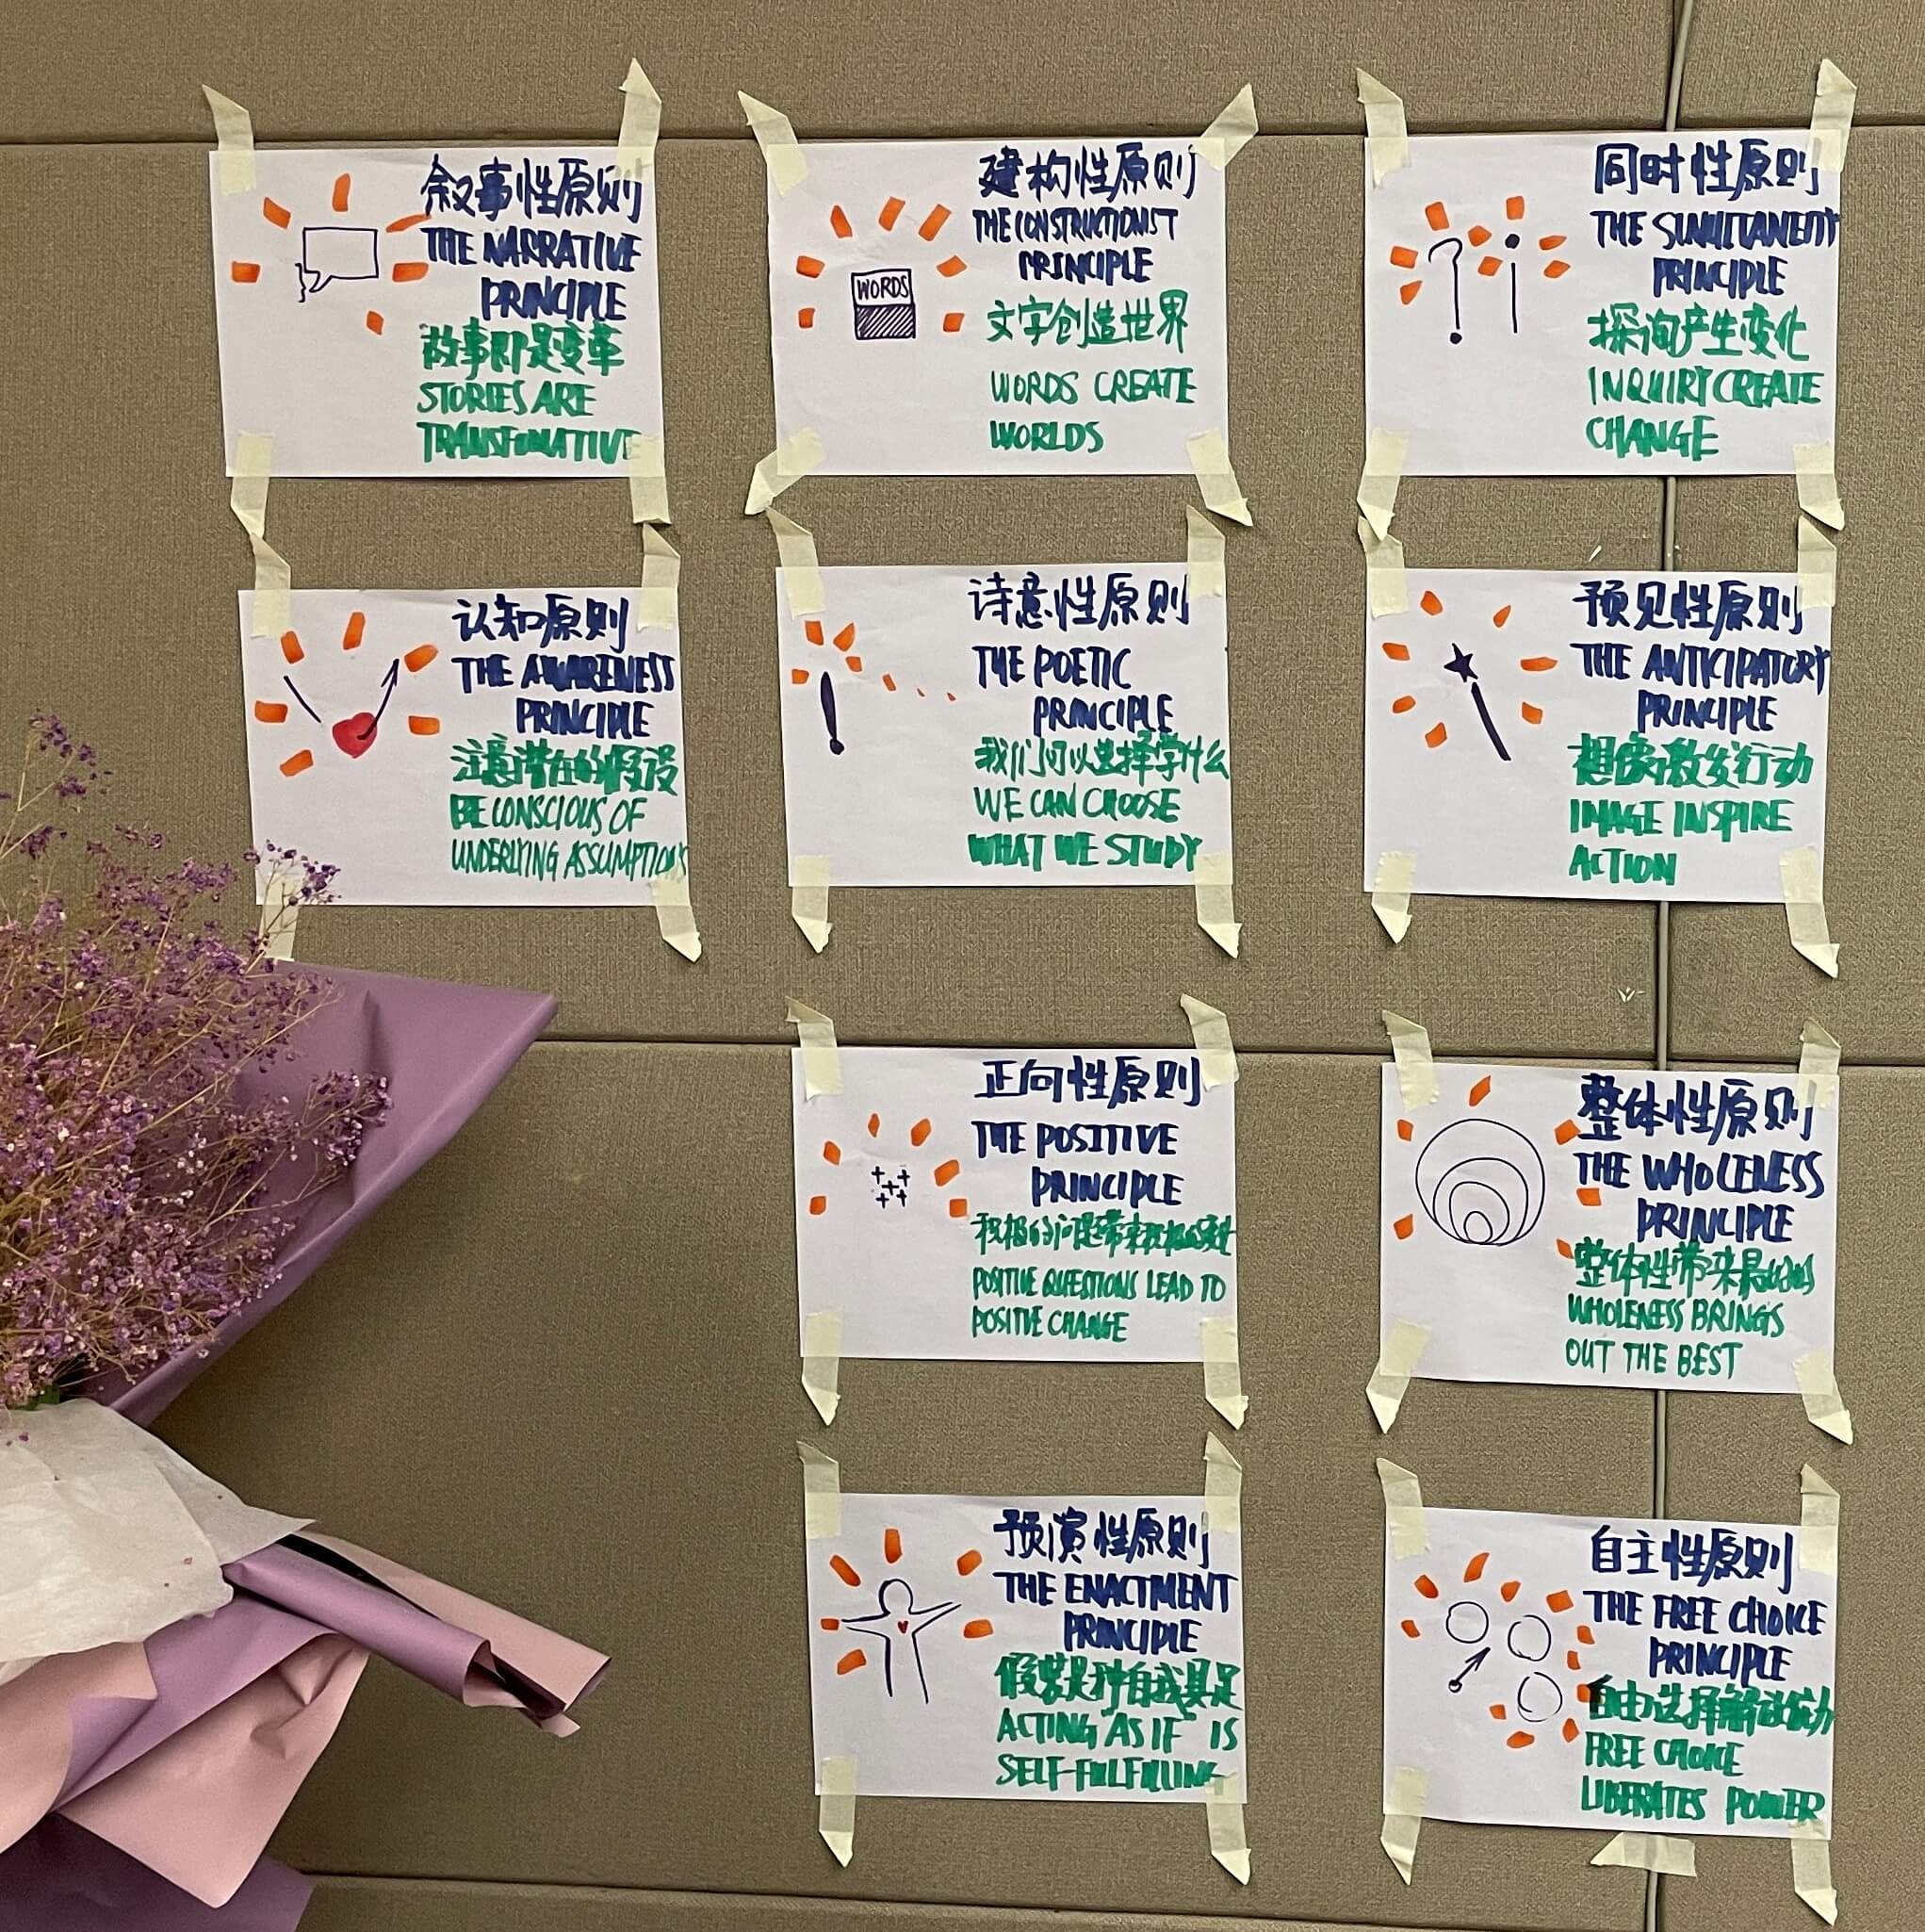 叙事性原则
THE NARRATIVE
PRINCIPLE
故事即是变革
STORIES ARE
TRANSFOMATIVE
建构性原则
THE CONSTRUCTIONIST
PRINCIPLE
WORDS
文字创造世界
WORDS CREATE
WORLDS
同时性原则
THE SIMULTANEITY
PRINCIPLE
探询产生变化
INQUIRY CREATE
CHANGE
认知原则
THE AWARENESS
PRINCIPLE
注意潜在的假设
BE CONSCIOUS OF
UNDERLYING ASSUMPTIONS
诗意性原则
THE POETIC
PRINCIPLE
我们可以选择学什么
WE CAN CHOOSE
WHAT WE STUDY
预见性原则
THE ANTICIPATORY
PRINCIPLE
想像激发行动
IMAGE INSPIRE
ACTION
正向性原则
THE POSITIVE
PRINCIPLE
积极的问题带来积极的变化
POSITIVE QUESTIONS LEAD TO
POSITIVE CHANGE
整体性原则
THE WHOLENESS
PRINCIPLE
整体性带来最好的
WHOLENESS BRINGS
OUT THE BEST
预演性原则
THE ENACTMENT
PRINCIPLE
假装是种自我具足
ACTING AS IF IS
SELF-FULFILLING
自主性原则
THE FREE CHOICE
PRINCIPLE
自由选择解放
FREE CHOICE
LIBERATES POWER